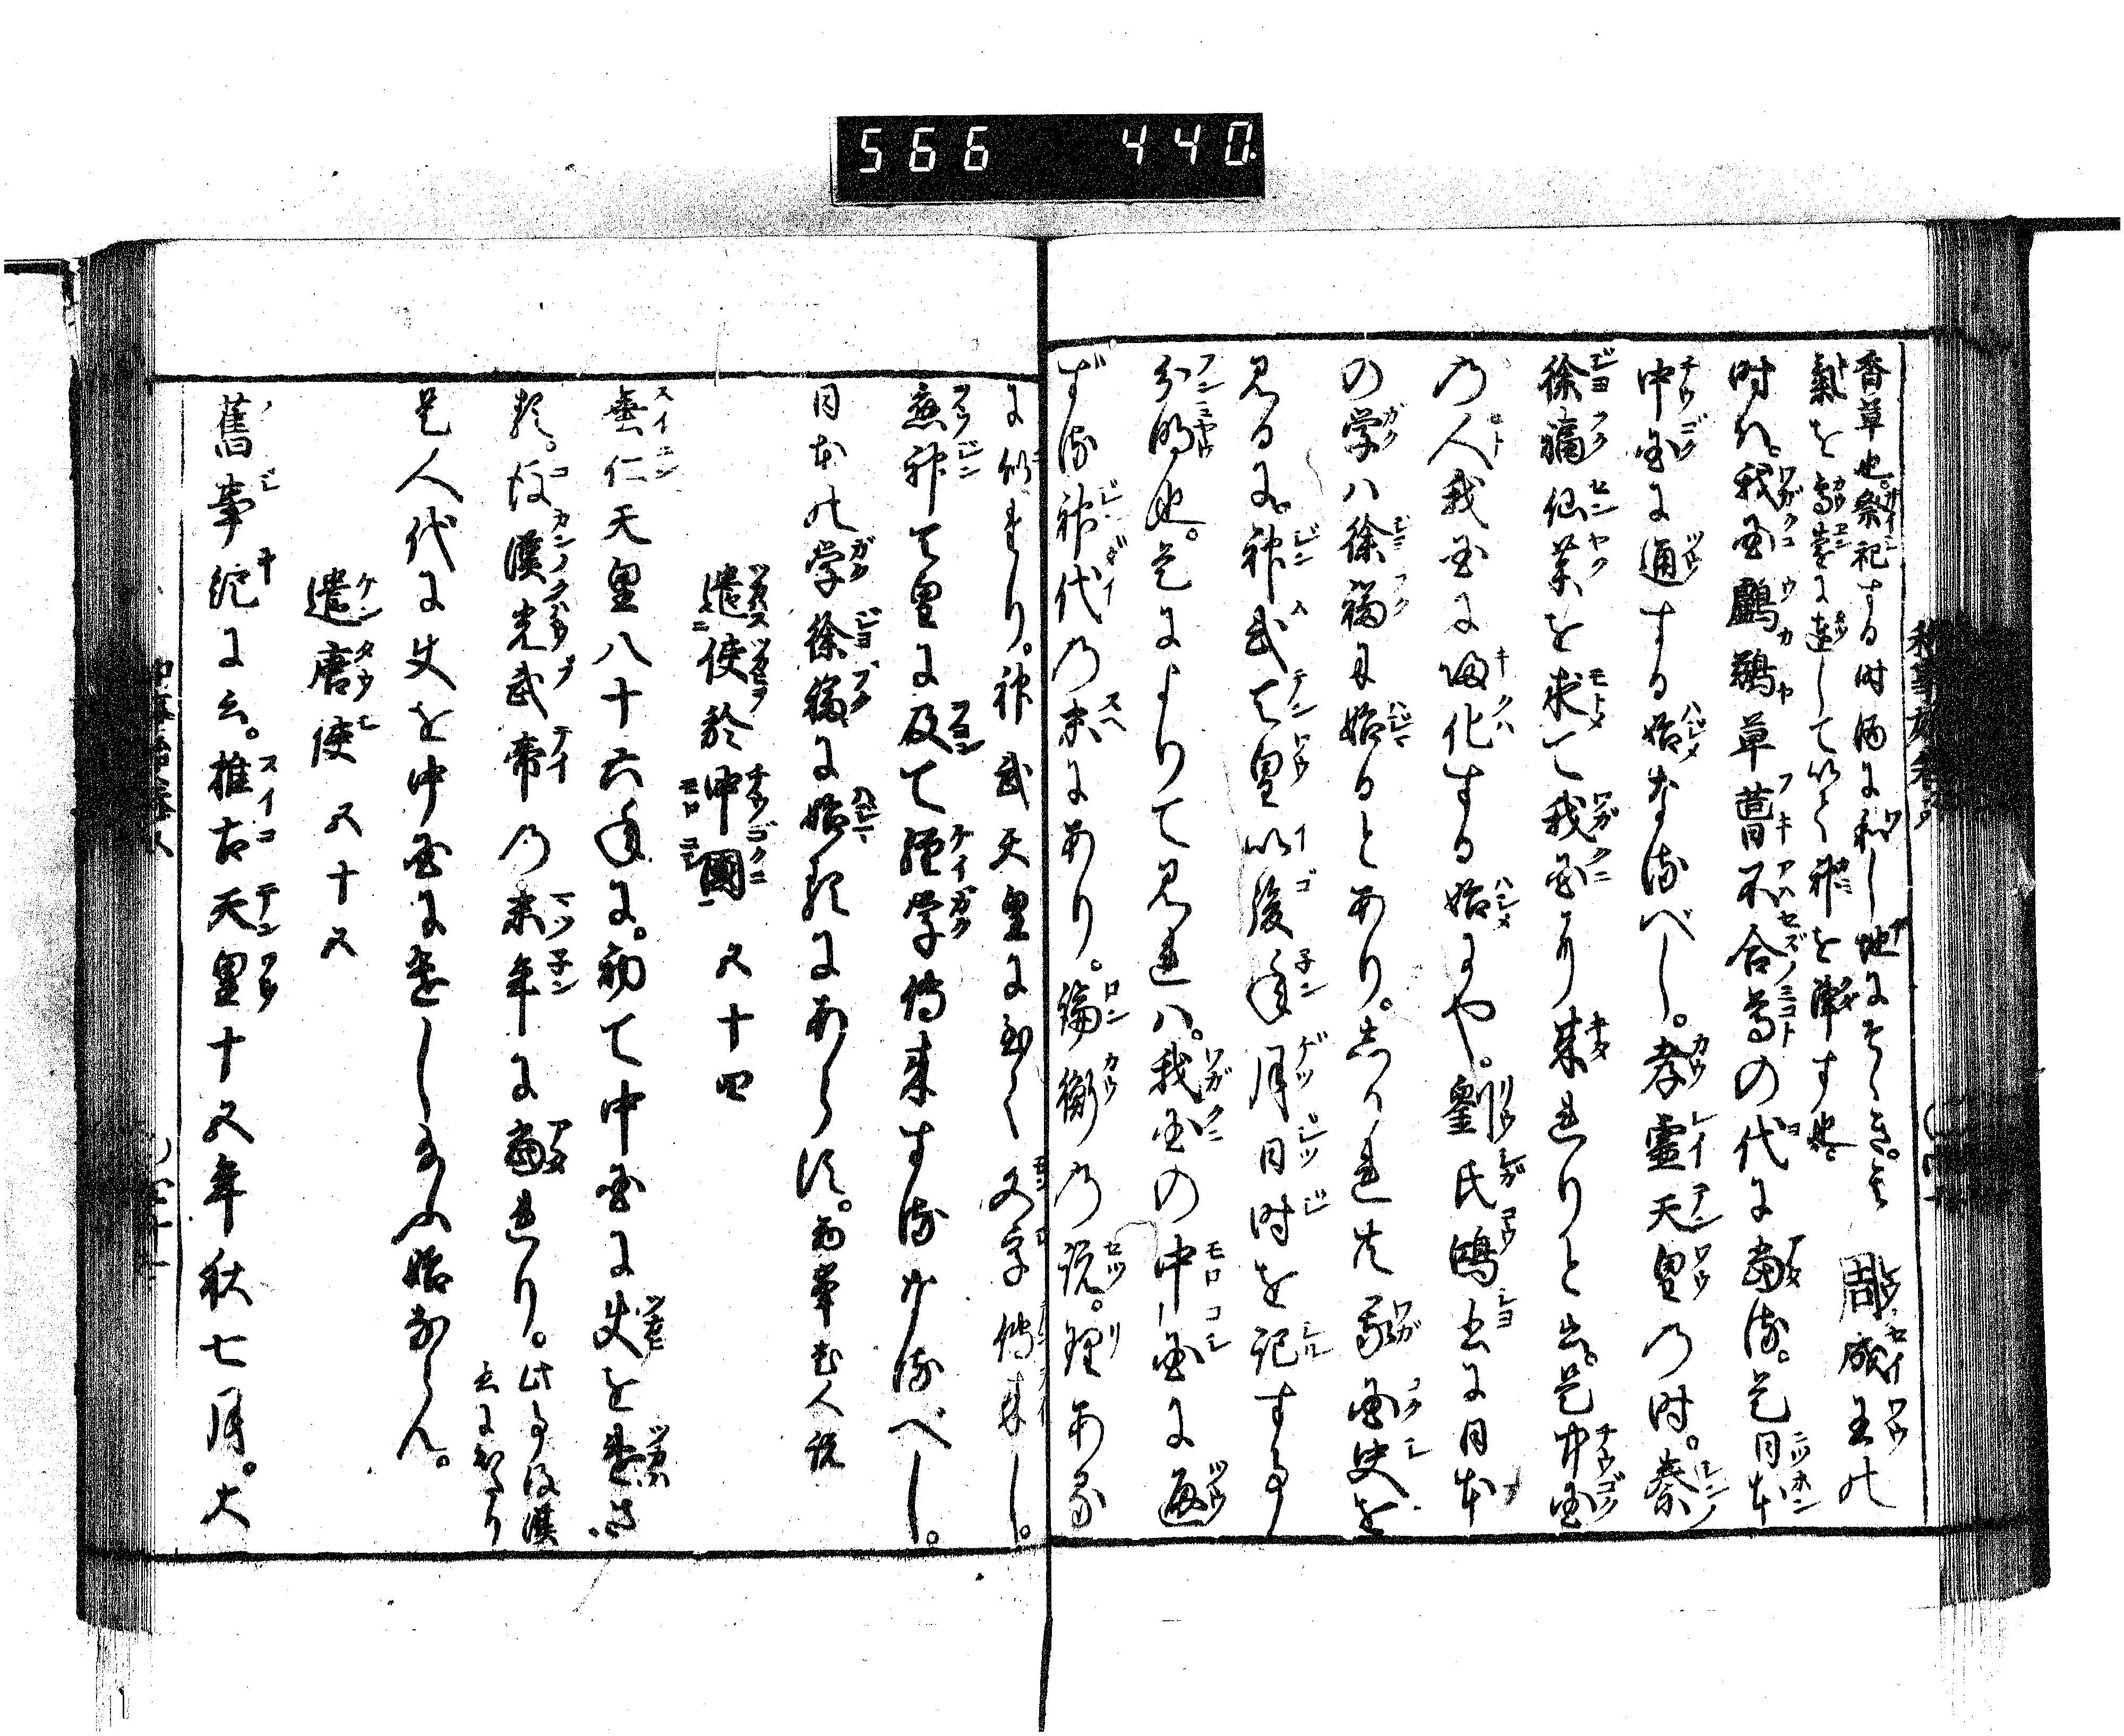 566 440
香草也。祭祀する時酒に和し地にそゝぎ。其
氣を高遠に達して以て神を降す也
周成王の
時ハ。我国鸕鷀草葺不合尊の代に當る。是日本
中国に通する始なるべし。孝霊天皇の時。秦
徐福仙薬を求て我国より来れりと云。是中国
の人我国に帰化する始にや。劉氏鴻書に日本
の学ハ徐福に始るとあり。しかれ共我国史を
見るに。神武天皇以後年月日時を記する事
分明也。是によりて見れハ。我国の中国に通
ずる神代の末にあり。論衡の説。理ある
に似たり。神武天皇に至て文字傳来し。
應神天皇に及て経学傳来するなるべし。
日本の学徐福に始るにあらず。
遣使於中國 五十四
垂仁天皇八十六年に。初て中国に使を遣さ
る。後漢光武帝の末年に當れり。此事後漢
書に然り
是人代に使を中国に遣し玉ふ始ならん。
遣唐使 五十五
舊事紀に云。推古天皇十五年秋七月。大